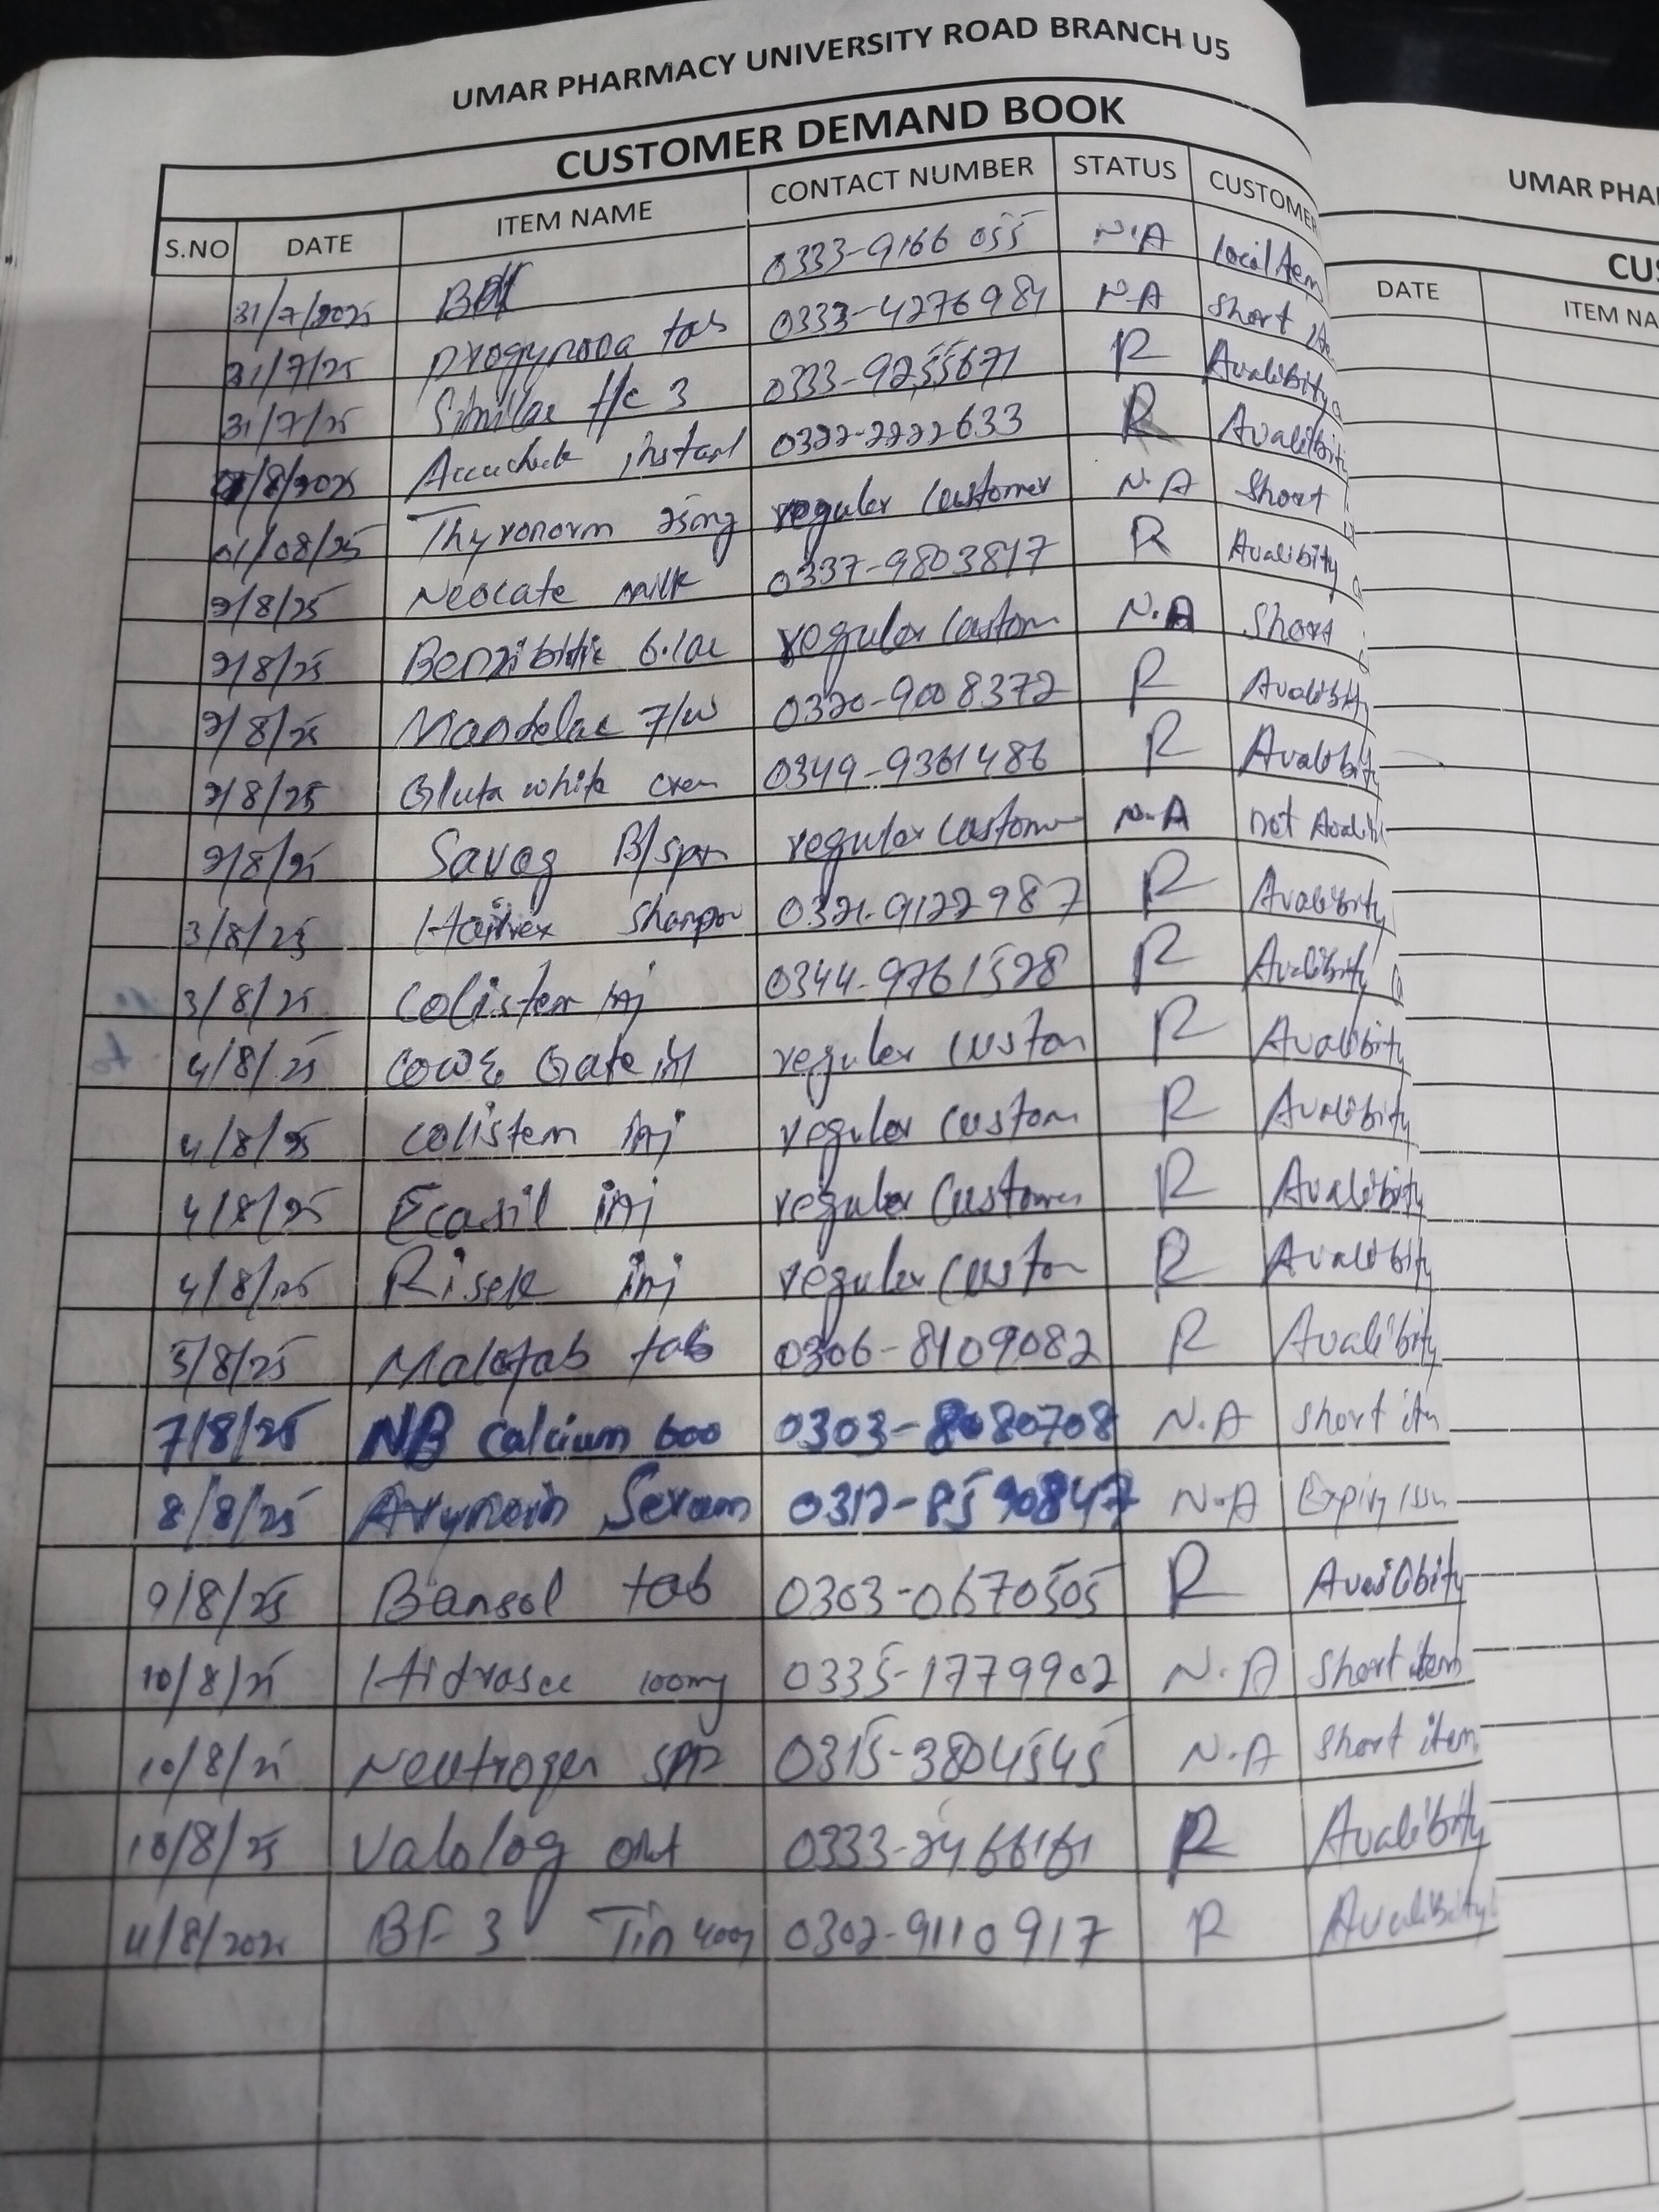 UMAR PHARMACY UNIVERSITY ROAD BRANCH U5
CUSTOMER DEMAND BOOK
S.NO DATE ITEM NAME CONTACT NUMBER STATUS CUSTOMER
31/7/2025 0333-9166 055 N.A local item
31/7/25 progynova tab 0333-4276981 N.A short
31/7/25 Similac f/c 3 0333-9255671 R Avalibity
01/8/2025 Accucheck instant 0322-2222633 R Avalibity
01/08/25 Thyronorm 25mg regular customer N.A short
2/8/25 Neocate milk 0337-9803817 R Avalibity
2/8/25 Benzibiotic 6.lac regular custom N.A short
2/8/25 Mandelac 7/w 0320-9008372 R Avalibity
2/8/25 Gluta white crem 0349-9361486 R Avalibity
2/8/25 Savog B/spry regular custome N.A not Avalib
3/8/25 Hairvex shampoo 0321-9122987 R Avalibity
3/8/25 Colisten inj 0344-9761528 R Avalibity
4/8/25 Cow & Gate regular custom R Avalibity
4/8/25 colistem inj regular custom R Avalibity
4/8/25 Ecasil inj regular customer R Avalibity
4/8/25 Risek inj regular custom R Avalibity
5/8/25 Malotab tab 0306-8109082 R Avalibity
7/8/25 NB Calcium 600 0303-8080708 N.A short item
8/8/25 Seram 0312-8590847 N.A Expiry issu
9/8/25 Bansol tab 0303-0670505 R Avalibity
10/8/25 Hidrasec 100mg 0335-1779902 N.A short item
10/8/25 Neutrogen 0315-3804545 N.A short item
10/8/25 Valolog oint 0333-2466161 R Avalibity
11/8/2025 BF 3 Tin 400g 0302-9110917 R Avalibity
UMAR PHA
CUS
DATE ITEM NA